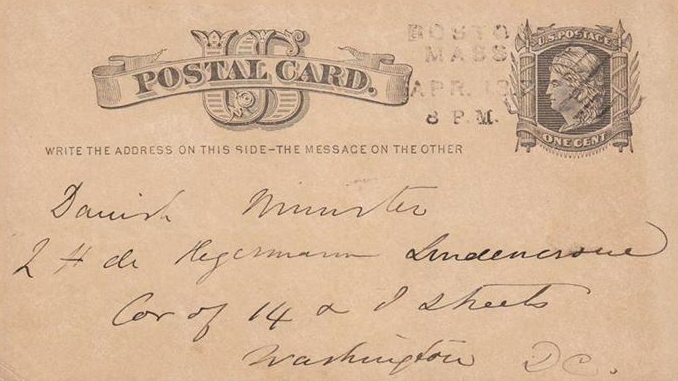 US
POSTAL CARD.
BOSTO
MASS
APR. 13
8 P.M.
U.S. POSTAGE
ONE CENT
WRITE THE ADDRESS ON THIS SIDE-THE MESSAGE ON THE OTHER
Danish Minister
de Hegermann Lindencrone
Cor of 14 & I streets
Washington D.C.